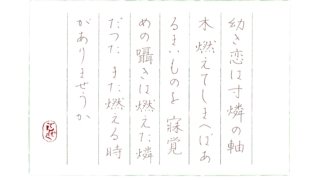 幼き恋は寸燐の軸
木燃えてしまへばあ
るまいものを 寐覚
めの囁きは燃えた燐
だつた また燃える時
がありませうか